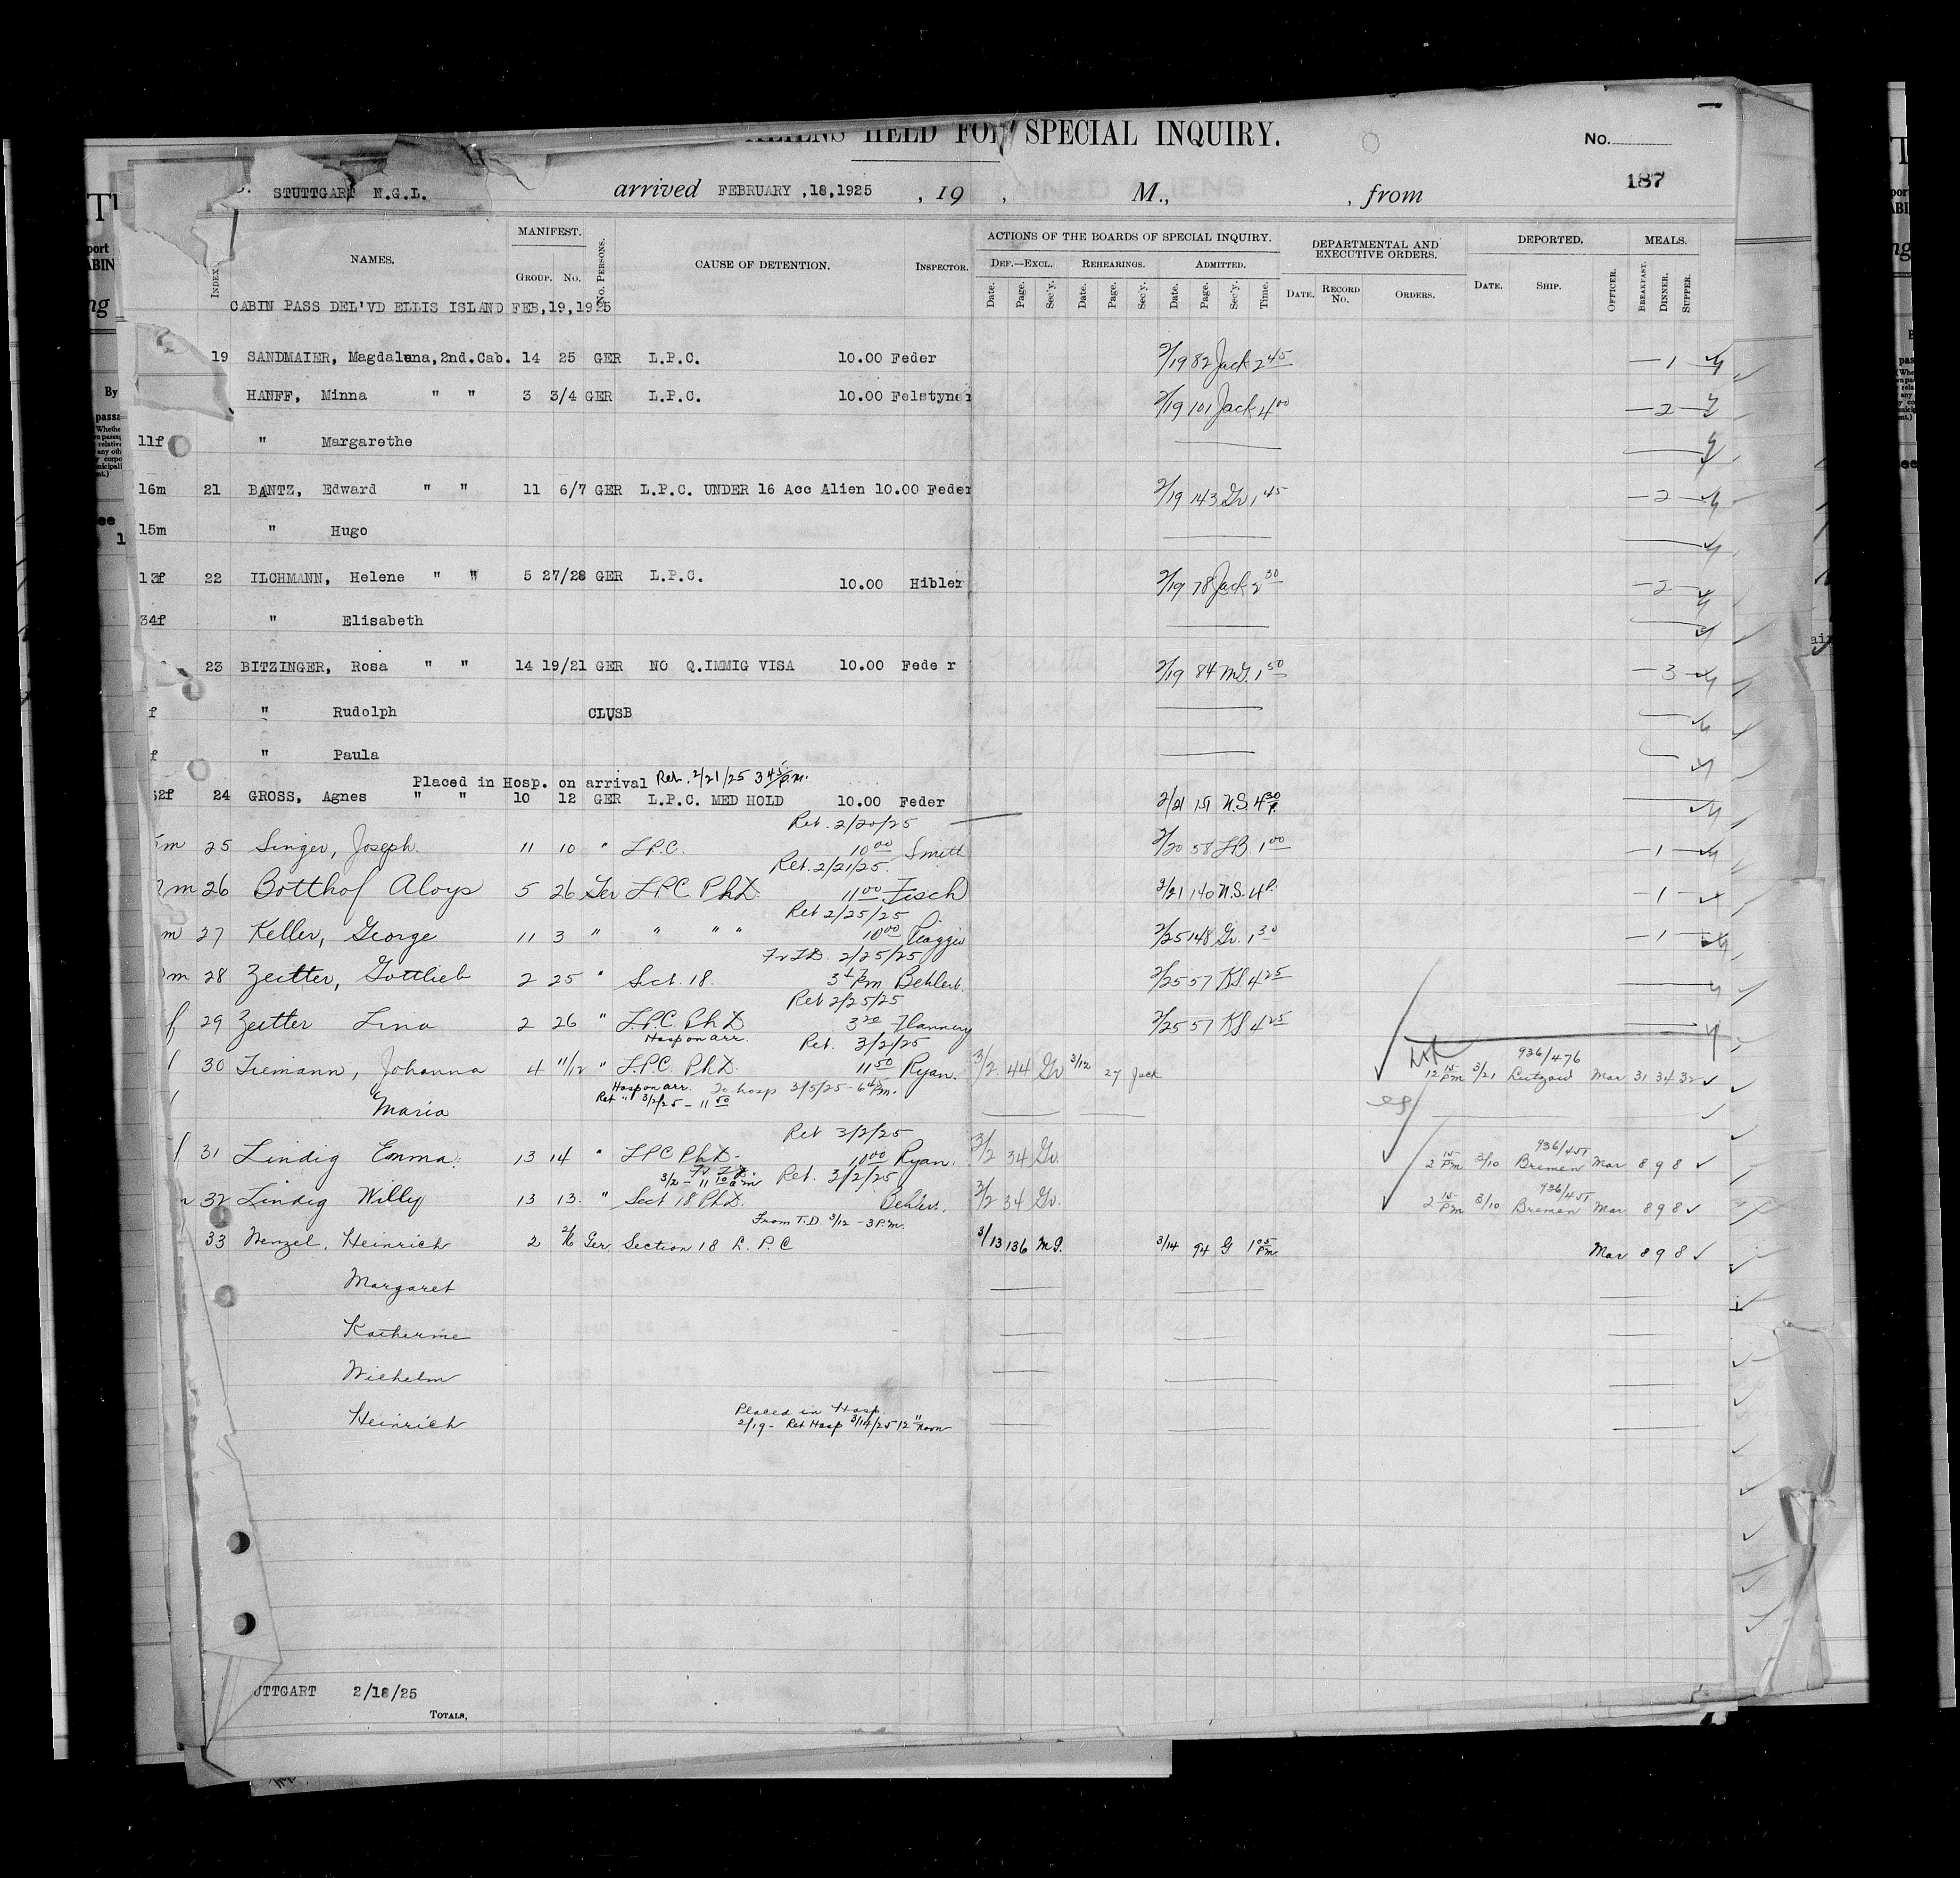 ALIENS HELD FOR SPECIAL INQUIRY.
No.
187
STUTTGART N.G.L. arrived FEBRUARY ,18,1925 , 19 , M., , from
INDEX NAMES. MANIFEST. GROUP. NO. No. PERSONS. CAUSE OF DETENTION. INSPECTOR. ACTIONS OF THE BOARDS OF SPECIAL INQUIRY. DEPARTMENTAL AND EXECUTIVE ORDERS. DEPORTED. MEALS.
DEF.—EXCL. REHEARINGS. ADMITTED.
Date. Page. Sec'y. Date. Page. Sec'y. Date. Page. Sec'y. Time. DATE. RECORD NO. ORDERS. DATE. SHIP. OFFICER. BREAKFAST. DINNER. SUPPER.
CABIN PASS DEL'VD ELLIS ISLAND FEB,19,1925
19 SANDMAIER, Magdalena,2nd.Cab. 14 25 GER L.P.C. 10.00 Feder 2/19 82 Jack 2 45 — 1 —
HANFF, Minna " " 3 3/4 GER L.P.C. 10.00 Felstyner 2/19 101 Jack 4 00 — 2 —
11f " Margarethe
16m 21 BANTZ, Edward " " 11 6/7 GER L.P.C. UNDER 16 Acc Alien 10.00 Feder 2/19 143 Gr 1 45 — 2 —
15m " Hugo
13f 22 ILCHMANN, Helene " " 5 27/28 GER L.P.C. 10.00 Hibler 2/19 78 Jack 2 30 — 2 —
34f " Elisabeth
23 BITZINGER, Rosa " " 14 19/21 GER NO Q.IMMIG VISA 10.00 Fede r 2/19 84 M.G. 1 50 — 3 —
f " Rudolph CLUSB
f " Paula
Placed in Hosp. on arrival Ret. 2/21/25 3 45 P.m.
2f 24 GROSS, Agnes " " 10 12 GER L.P.C. MED HOLD 10.00 Feder 2/21 151 N.S. 4 30 P.
Ret. 2/20/25
m 25 Singer, Joseph. 11 10 " L.P.C. 10 00 Smith 2/20 58 1 00 — 1 —
Ret. 2/21/25.
m 26 Botthof Aloys 5 26 Ger L.P.C. Ph.D. 11 00 Fisch 2/21 140 N.S. 4 P. — 1 —
Ret 2/25/25
m 27 Keller, George 11 3 " " " " 10 00 2/25 148 Gr. 1 30 — 1 —
Fr T.D. 2/25/25
m 28 Zeitter, Gottlieb 2 25 " Sect. 18. Pm Behlert. 2/25 57 K.S. 4 25
Ret 2/25/25
f 29 Zeitter Lina 2 26 " L.P.C. Ph D 3 20 Flannery 2/25 57 K.S. 4 25
Hosp on arr. Ret. 3/2/25 936/476
30 Tiemann, Johanna 4 11/12 " L.P.C. Ph.D. 11 50 Ryan. 3/2 44 Gr 3/12 27 Jack 12 15 Pm 3/21 Lutzow Mar 31 34 32
Hosp on arr. To hosp 3/5/25 - 6 45 Pm.
Ret " 3/2/25 - 11 50
Maria
Ret 3/2/25 936/451
31 Lindig Emma. 13 14 " L.P.C. Ph.D. 10 00 Ryan. 3/2 34 Gr. 2 15 Pm 3/10 Bremen Mar 8 9 8
Fr T.D. 3/2 - 11 10 am Ret. 3/2/25 936/451
32 Lindig Willy 13 13. " Sect 18 Ph.D. 3/2 34 Gr. 2 15 Pm 3/10 Bremen Mar 8 9 8
From T.D. 3/12 - 3 P.m.
33 Wenzel, Heinrich 2 2/6 Ger Section 18 L. P. C 3/13 136 M.G. 3/14 94 G 1 05 Pm. Mar 8 9 8
Margaret
Katherine
Wilhelm
Placed in Hosp.
Heinrich 2/19 - Ret Hosp 3/14/25 12 Noon
UTTGART 2/18/25
TOTALS,